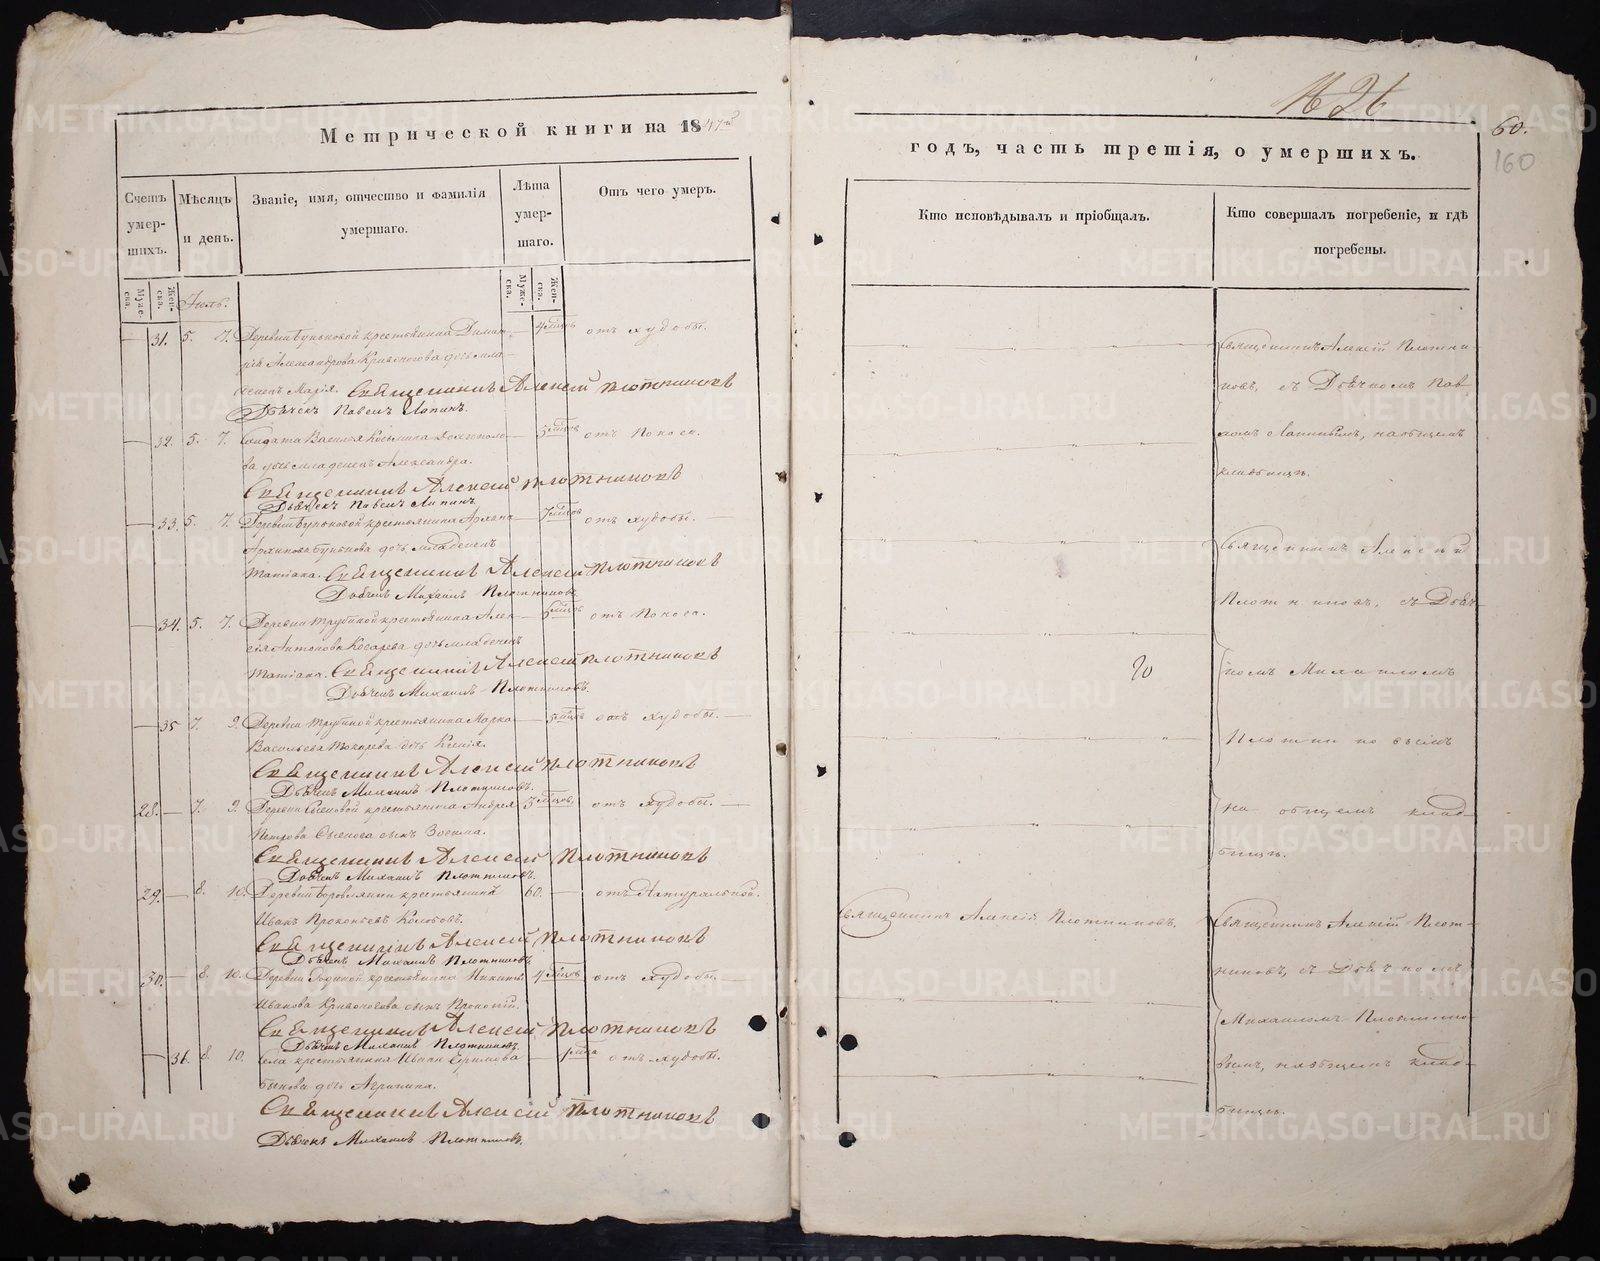 Метрической книги на 1847й
Счетъ умершихъ.
Мѣсяцъ и день.
Званіе, имя, отчество и фамилія умершаго.
Лѣта умершаго.
Отъ чего умеръ.
Муже-ска. Жен-ска.
Муже-ска. Жен-ска.
Іюль.
— 31. 5. 7. крестьянина Димит- — 4 мсцов отъ худобы.
рія Александрова Кривоногова дочь мла-
денецъ Марія. Священникъ Алексей Плотниковъ
Дьячекъ Павелъ Ляпинъ.
— 32. 5. 7. Солдата Василья Косьмина — 5 мсцов отъ поноса.
ва дочь младенецъ Александра.
Священникъ Алексей Плотниковъ
Дьячекъ Павелъ Ляпинъ
— 33. 5. 7. Деревни крестьянина — 7 мсцов отъ худобы. —
Архипова дочь младенецъ
Татіана. Священникъ Алексей Плотниковъ
Дьячекъ Михаилъ Плотниковъ
— 34. 5. 7. Деревни Трубиной крестьянина Алек- — 6 мсцов отъ поноса.
сія Антонова Косарева дочь младенецъ
Татіана. Священникъ Алексей Плотниковъ
Дьячекъ Михаилъ Плотниковъ.
— 35 7. 9. Деревни Трубиной крестьянина Марка — 5 мсцов отъ худобы. —
Васильева Токарева дочь Ксенія.
Священникъ Алексей Плотниковъ
Дьячекъ Михаилъ Плотниковъ.
28. — 7. 9. Деревни крестьянина Андрея 5 мсцов. отъ худобы. —
Петрова сынъ Зосима.
Священникъ Алексей Плотниковъ
Дьячекъ Михаилъ Плотниковъ.
29. — 8. 10. Деревни Боровлянки крестьянинъ 60. — отъ Натуральной.
Иванъ Прокопьевъ Колобовъ.
Священникъ Алексей Плотниковъ
Дьячекъ Михаилъ Плотниковъ
30. — 8. 10. Деревни крестьянина Никиты 4 мсцов отъ худобы —
Иванова Кривоногова сынъ Прокопій.
Священникъ Алексей Плотниковъ
Дьячекъ Михаилъ Плотниковъ
— 36. 8. 10. Села крестьянина Ивана Ефимова — отъ худобы.
Быкова дочь Агрипина.
Священникъ Алексей Плотниковъ
Дьячекъ Михаилъ Плотниковъ.
60.
160
годъ, часть третія, о умершихъ.
Кто исповѣдывалъ и пріобщалъ.
Кто совершалъ погребеніе, и гдѣ погребены.
Священникъ Алексій Плотни-
ковъ, съ Дьячкомъ Пав-
ломъ Ляпинымъ, на общемъ
кладбищѣ.
Священникъ Алексій
Плотниковъ, съ Дьяч-
комъ Михаиломъ
Плотниковымъ
на общемъ клад-
бищѣ.
Священникъ Алексій Плотниковъ.
Священникъ Алексій Плот-
никовъ, съ Дьячкомъ
Михаиломъ Плотнико-
вымъ, на общемъ клад-
бищѣ.
METRIKI.GASO-URAL.RU